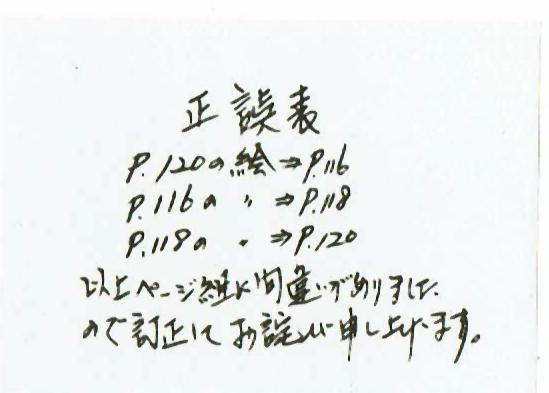 正誤表
P.120の絵⇒P.116
P.116の 〃 ⇒P.118
P.118の 〃 ⇒P.120
以上ページ組に間違いがありました
ので訂正してお詫び申し上げます。